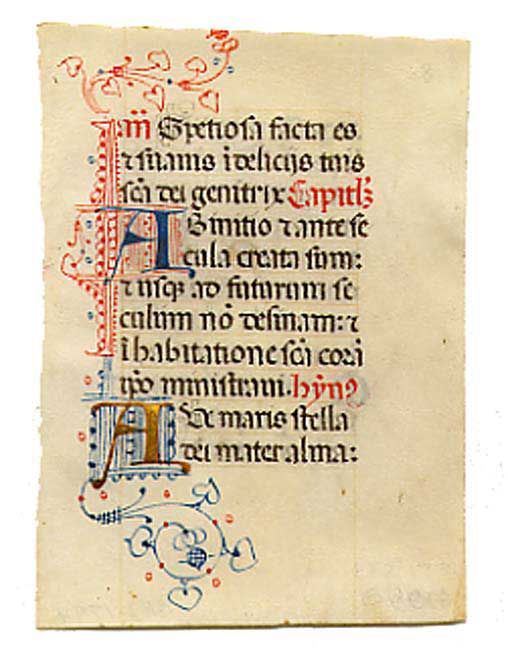 añ Spetiosa facta es
⁊ suauis ī delicijs tuis
sc̄a dei genitrix Capitl̄ʒ
AB initio ⁊ ante se
cula creata sum:
⁊ usqꝫ ad futurum se
culum nō desinam: ⁊
ī habitatione sc̄a corā
ip̄o ministraui. hyn9
AVe maris stella
dei mater alma: